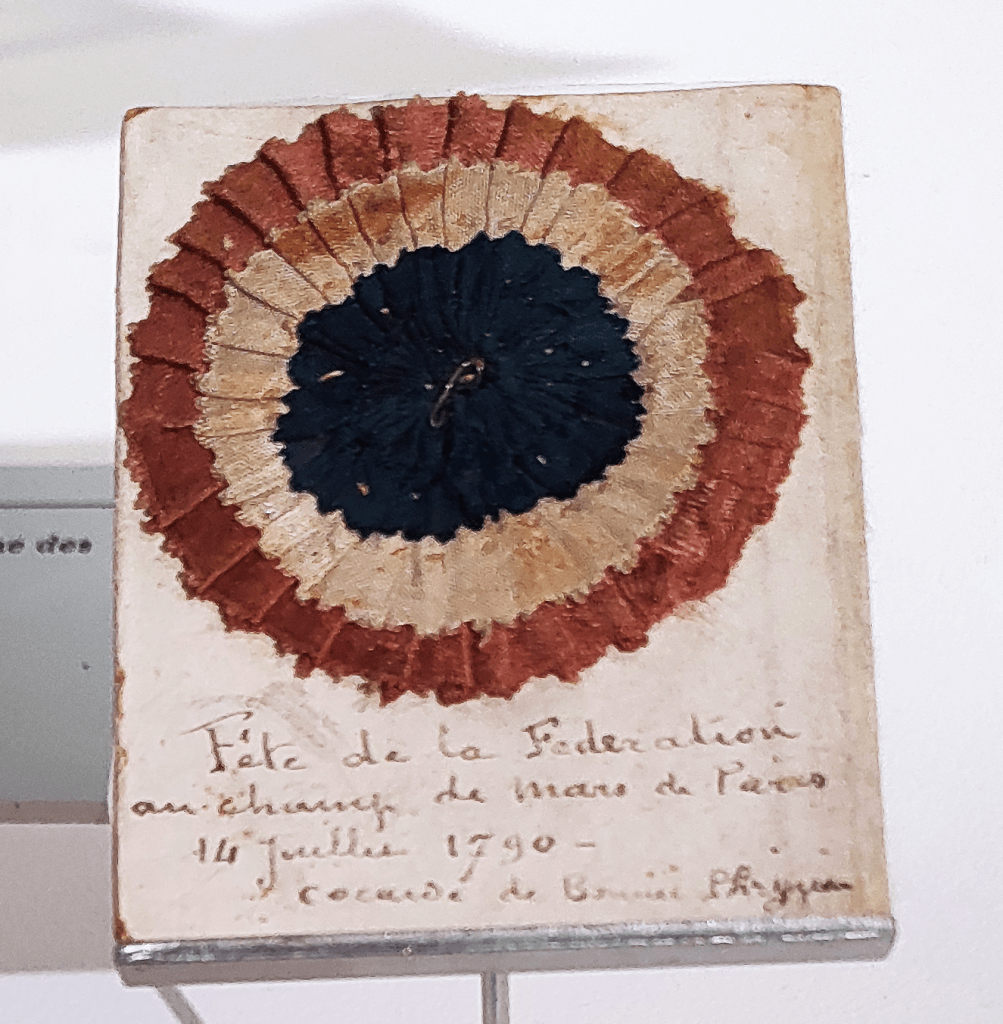 né des
Fête de la Federation
au champ de mars de Paris
14 Juillet 1790 -
cocarde de Bonnet Phrygien